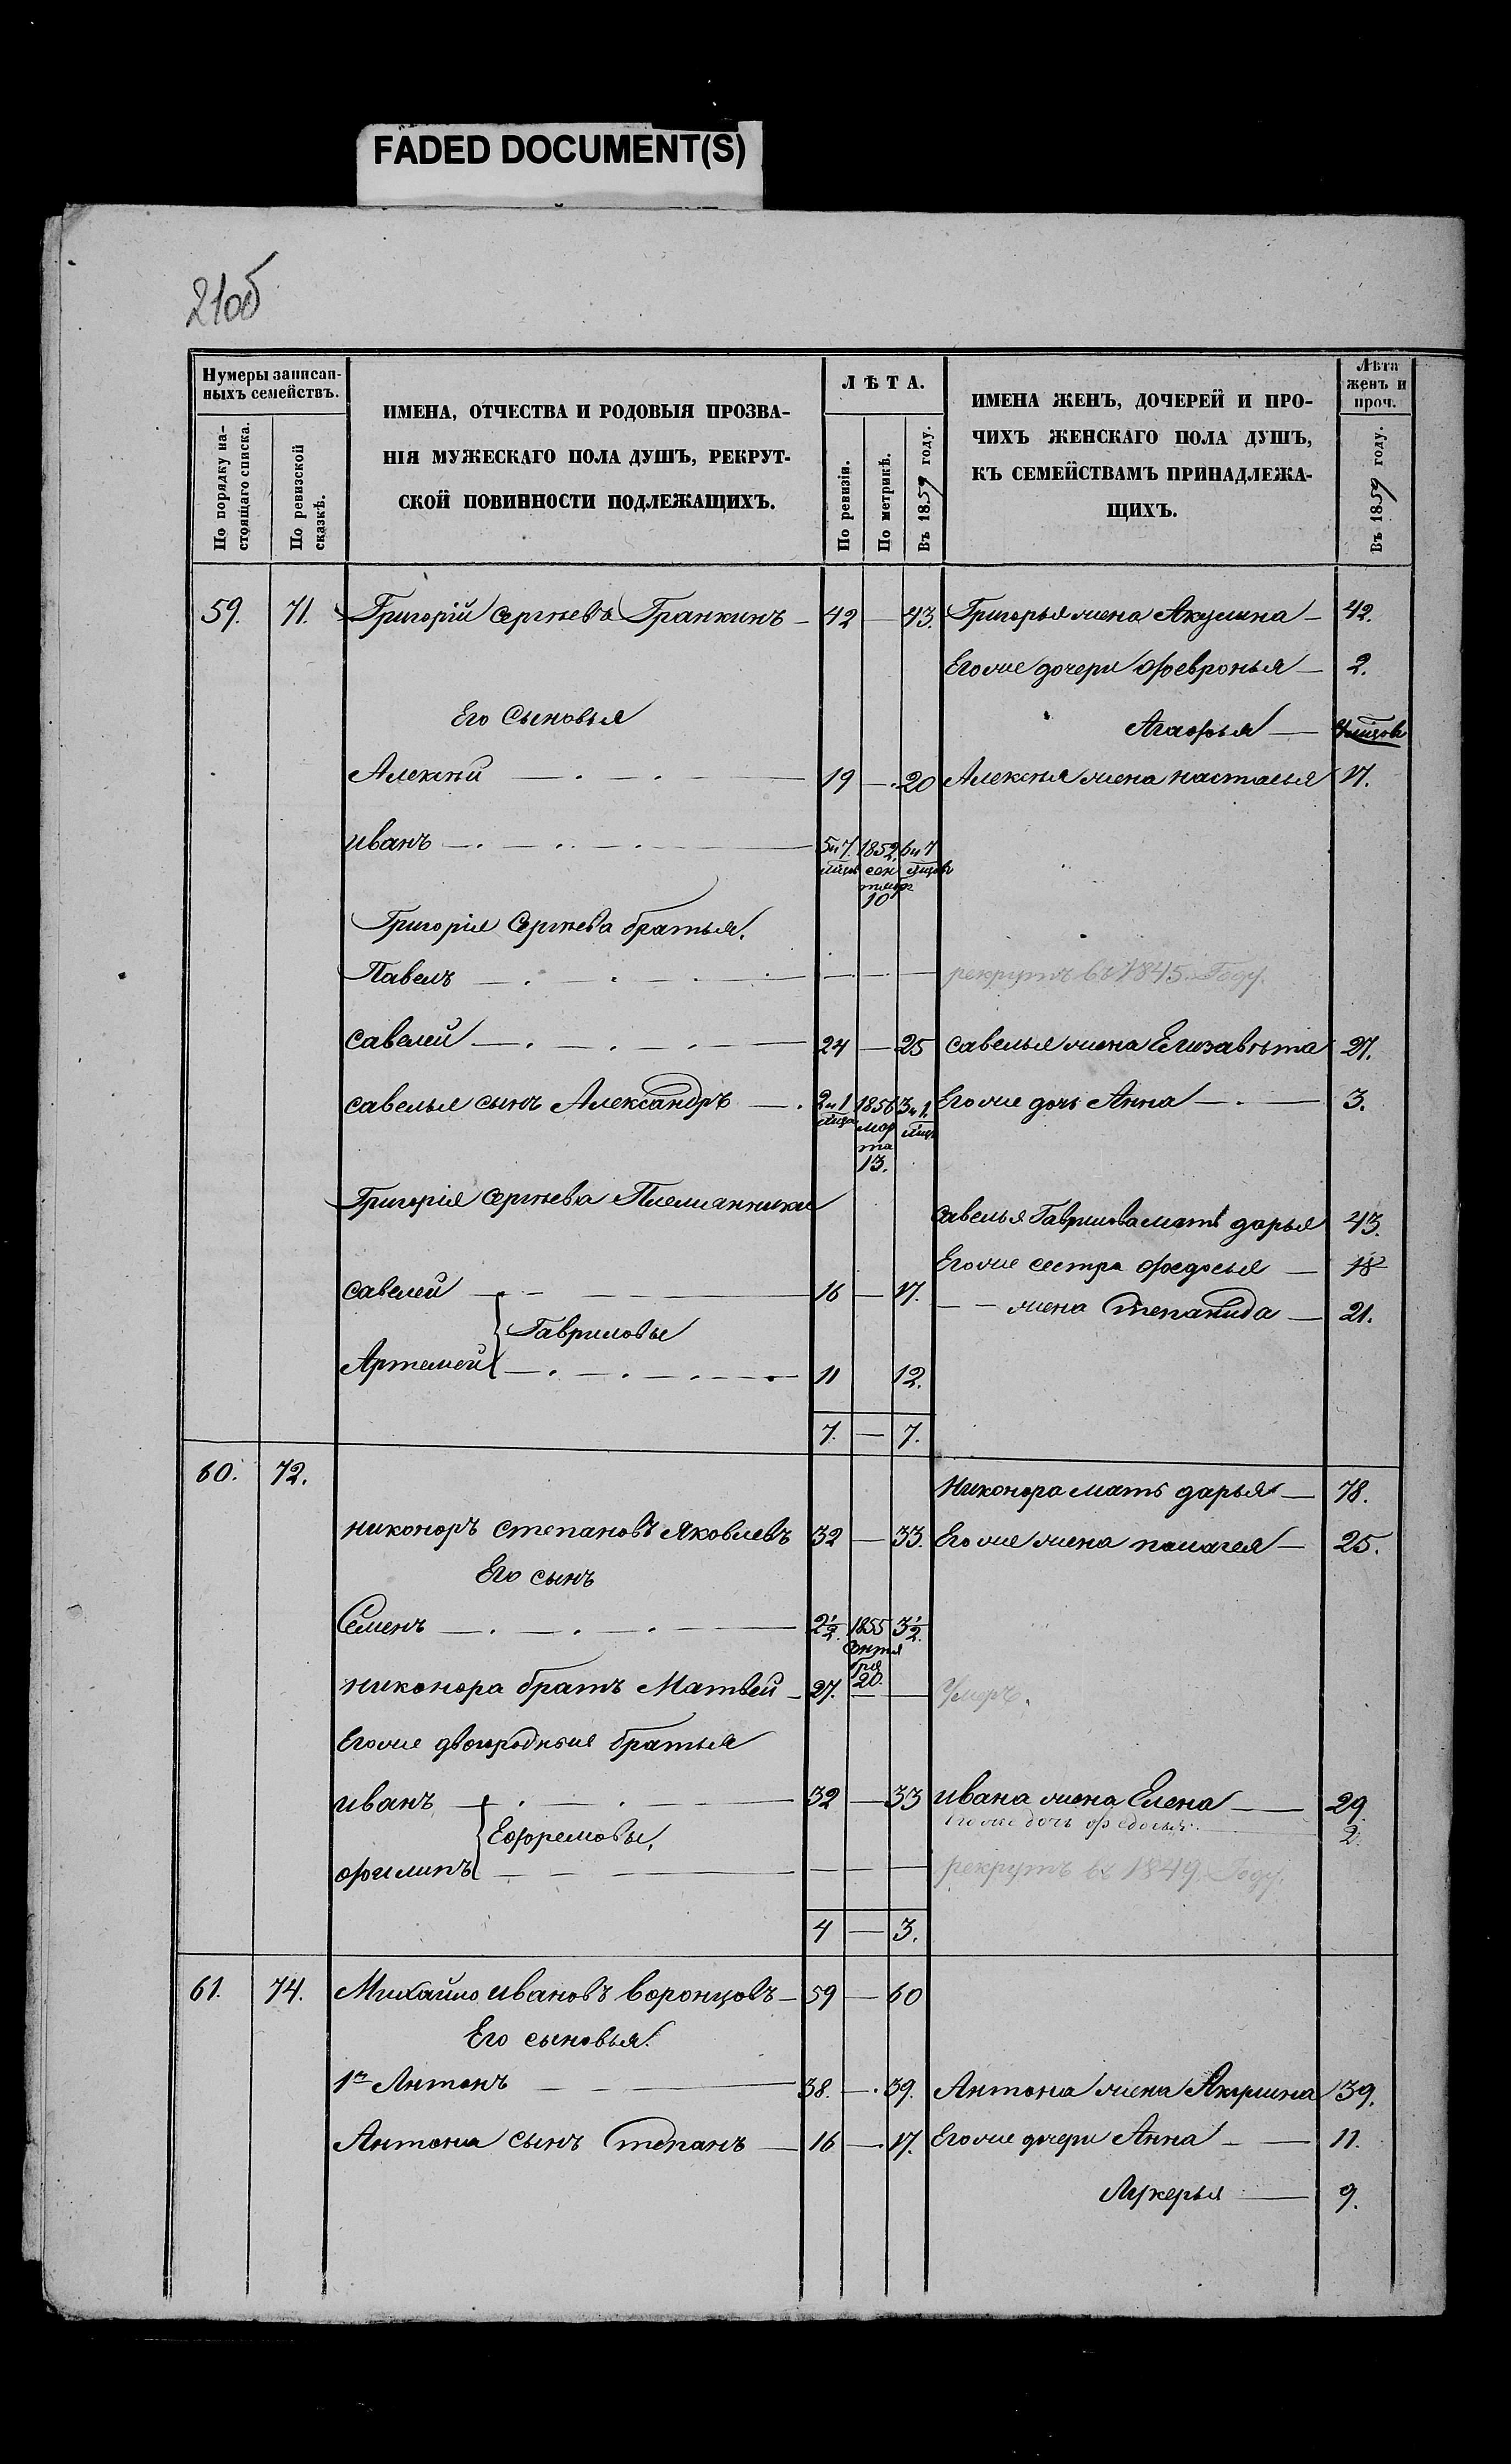 FADED DOCUMENT(S)
210б
Нумеры записан-
ныхъ семействъ.
По порядку на-
стоящаго списка.
По ревизской
сказкѣ.
ИМЕНА, ОТЧЕСТВА И РОДОВЫЯ ПРОЗВА-
НІЯ МУЖЕСКАГО ПОЛА ДУШЪ, РЕКРУТ-
СКОЙ ПОВИННОСТИ ПОДЛЕЖАЩИХЪ.
ЛѢТА.
По ревизіи.
По метрикѣ.
Въ 1859 году.
ИМЕНА ЖЕНЪ, ДОЧЕРЕЙ И ПРО-
ЧИХЪ ЖЕНСКАГО ПОЛА ДУШЪ,
КЪ СЕМЕЙСТВАМЪ ПРИНАДЛЕЖА-
ЩИХЪ.
Лѣта
женъ и
проч.
Въ 1859 году.
59. 71. Григорій Сергѣевъ Гранкинъ — 42 — 43. Григорья жена Акулина — 42.
Его же дочери Февронья — 2.
Его Сыновья
Агафья —
Алексѣй — 19 — 20 Алексѣя жена настасья 17.
иванъ — 5 и 7 1852 6 и 7
мѣсяц сен мѣсяцъ
тября
10
Григорія Сергѣева братья.
Павелъ — рекрутъ въ 1845 Году.
савелей — 24 — 25 савелья жена Елизавѣта 27.
савелья сынъ Александръ — 2 и 1 1856 3 и 1. Его же дочь Анна — 3.
мар
та
13.
Григорія сергѣева Племянники
савелья Гаврилова мать дарья 43.
Его же сестра федосья — 18
савелей — 16 — 17. — жена Степанида — 21.
Гавриловы
Артемей — 11 12.
7. — 7.
60. 72. Никонора мать дарья — 78.
никоноръ степановъ Яковлевъ 32 — 33. Его же жена пелагея — 25.
Его сынъ
Семенъ — 2½. 1855 3½.
Сентя
бря
20.
никонора братъ Матвей — 27. — Умеръ.
Его же двоюродныя братья
иванъ — 32 — 33 ивана жена Елена — 29
Его же дочь федосья 2.
Ефремовы.
филипъ — рекрутъ въ 1849. Году.
4 — 3.
61. 74. Михайло ивановъ воронцовъ — 59 — 60
Его сыновья.
1й Антонъ — 38. — 39. Антона жена Акулина 39.
Антона сынъ Степанъ — 16 — 17. Его же дочери Анна — 11.
Лукерья — 9.